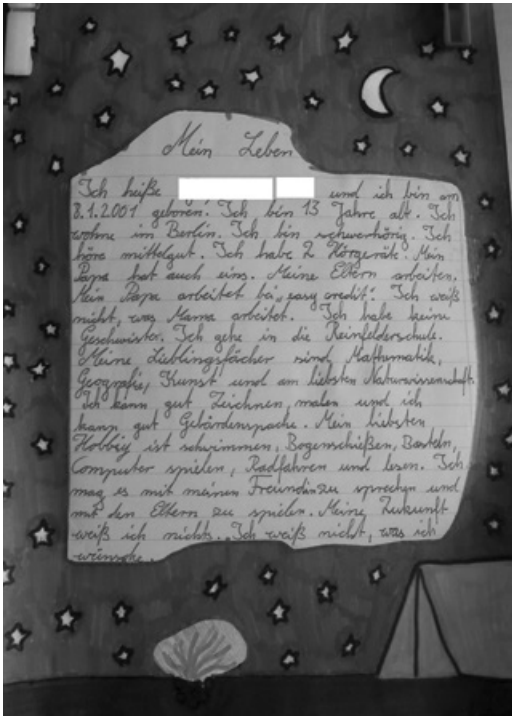 Mein Leben
Ich heiße und ich bin am
8.1.2001 geboren. Ich bin 13 Jahre alt. Ich
wohne im Berlin. Ich bin schwerhörig. Ich
höre mittelgut. Ich habe 2 Hörgeräte. Mein
Papa hat auch eins. Meine Eltern arbeiten.
Mein Papa arbeitet bei „easy credit“. Ich weiß
nicht, was Mama arbeitet. Ich habe keine
Geschwister. Ich gehe in die Reinfelderschule.
Meine Lieblingsfächer sind Mathematik,
Geografie, Kunst und am liebsten Naturwissenschaft.
Ich kann gut Zeichnen, malen und ich
kann gut Gebärdensprache. Mein liebsten
Hobby ist schwimmen, Bogenschießen, Basteln,
Computer spielen, Radfahren und lesen. Ich
mag es mit meinen Freundin zu sprechen und
mit den Eltern zu spielen. Meine Zukunft
weiß ich nichts. Ich weiß nicht, was ich
wünsche.